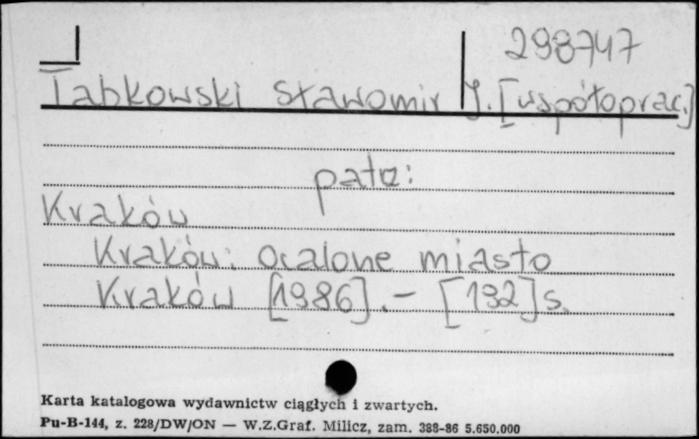 298747
Tabkowski Sławomir J. [współoprac.]
patrz:
Kraków
Kraków: ocalone miasto
Kraków [1986]. – [192] s.
Karta katalogowa wydawnictw ciągłych i zwartych.
Pu-B-144, z. 228/DW/ON — W.Z.Graf. Milicz, zam. 388-86 5.650.000